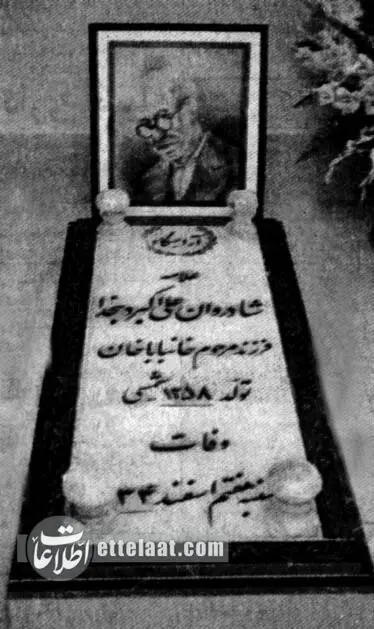 آرامگاه
علامه
شادروان علی اکبر دهخدا
فرزند مرحوم خانباباخان
تولد ۱۲۵۸ شمسی
وفات
شنبه هفتم اسفند ۳۴
اطلاعات
ettelaat.com